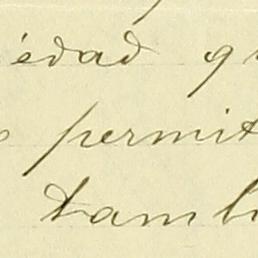 iedad q
permit
tamb